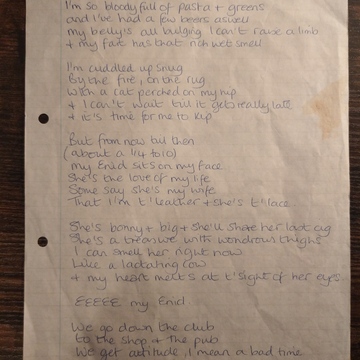 I'm so bloody full of pasta + greens
and I've had a few beers aswell
my belly's all bulging I can't raise a limb
+ my fart has that rich wet smell
I'm cuddled up snug
By the fire, on the rug
With a cat perched on my
+ I can't wait till it gets really late
+ it's time for me to kip
But from now till then
(about a 1/4 to 10)
my Enid sits on my face
She's the love of my life
Some say she's my wife
That I'm t'leather + she's t'lace
She's bonny + big + she'll share her last
She's a treasure with wondrous thighs
I can smell her right now
Like a lactating cow
+ my heart melts at t'sight of her eyes
EEEEE my Enid
We go down the club
to the shop + the pub
We get attitude, I mean a bad time